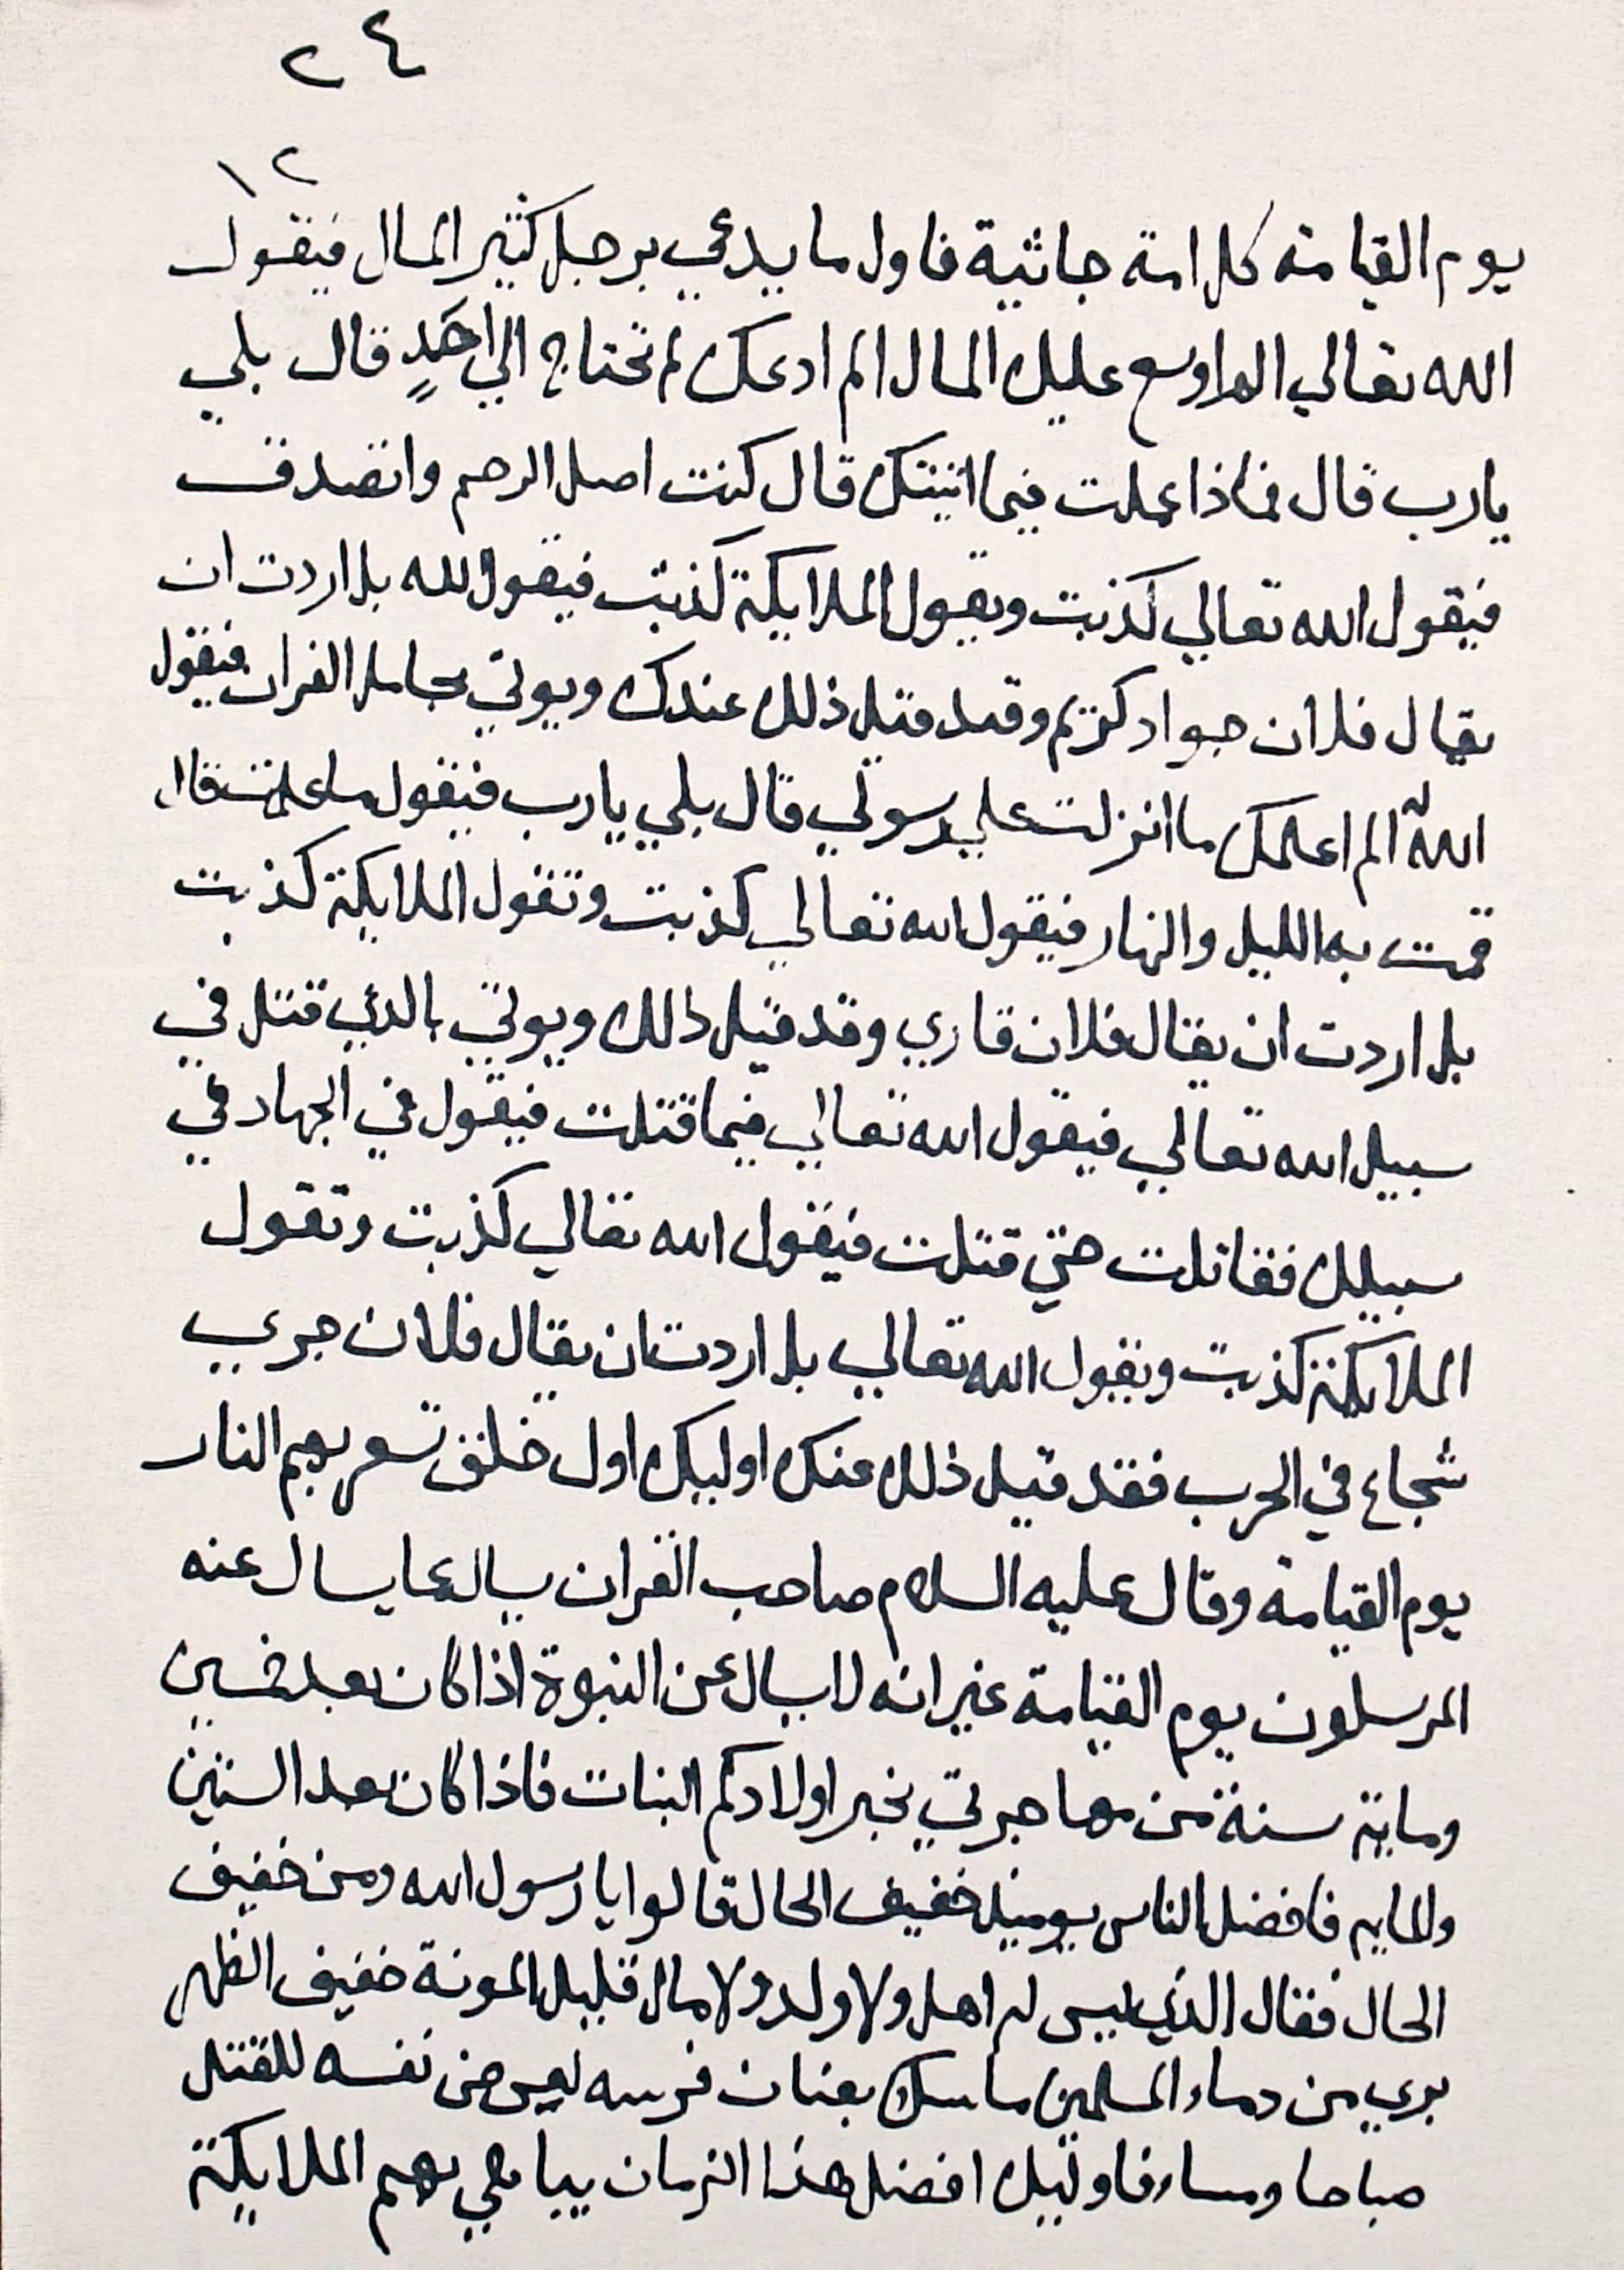 ٢٤
١٢
يوم القيامة كل امة جاثية فاول ما يدعي برجل كثير المال فيقول
الله تعالي الم اوسع عليك المال الم ادعك لم تحتاج الي احَدٍ قال بلي
يارب قال فماذا عملت فيما اتيتك قال كنت اصل الرحم واتصدق
فيقول الله تعالي كذبت ويقول الملايكة كذبت فيقول الله بل اردت ان
يقال فلان جواد كريم وقد قيل ذلك عندك ويوتي بحامل القران فيقول
اللهُ الم اعلمك ما انزلت علي رسولي قال بلي يارب فيقول ما عملت قال
قمت به الليل والنهار فيقول الله تعالي كذبت وتقول الملايكة كذبت
بل اردت ان يقال فلان قاري وقد قيل ذلك ويوتي بالذي قتل في
سبيل الله تعالي فيقول الله تعالي فيما قتلت فيقول في الجهاد في
سبيلك فقاتلت حتي قتلت فيقول الله تعالي كذبت وتقول
الملايكة كذبت ويقول الله تعالي بل اردت ان يقال فلان جري
شجاع في الحرب فقد قيل ذلك عنك اوليك اول خلق تسعر بهم النار
يوم القيامة وقال عليه السلام صاحب القران يسال عما يسال عنه
المرسلون يوم القيامة غير انه لا يسال عن النبوة اذا كان بعد خمسين
وماية سنة من مهاجرتي خير اولادكم البنات فاذا كان بعد الستين
والماية فافضل الناس يوميذ خفيف الحال قالوا يا رسول الله ومن خفيف
الحال فقال الذي ليس له اهل ولا ولد ولا مال قليل المونة خفيف الظهر
بري من دماء المسلمين ماسك بعنان فرسه يعرض نفسه للقتل
صباحا ومساء فاوليك افضل هذا الزمان يباهي بهم الملايكة